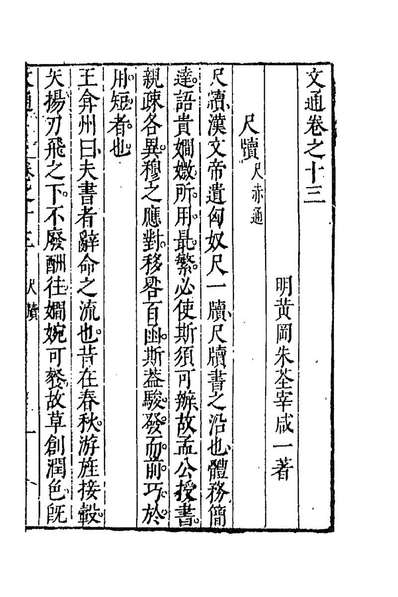 文通卷之十三
明黃岡朱荃宰咸一著
尺牘尺赤通
尺牘漢文帝遺匈奴尺一牘尺牘書之沿也體務簡
達語貴嫺媺所用最繁必使斯須可辦故孟公授書
親疎各異穆之應對移晷百函斯葢駿發而前巧於
用短者也
王弇州曰夫書者辭命之流也昔在春秋游旌接轂
矢揚刃飛之下不廢酬往嫺婉可餐故草創潤色旣